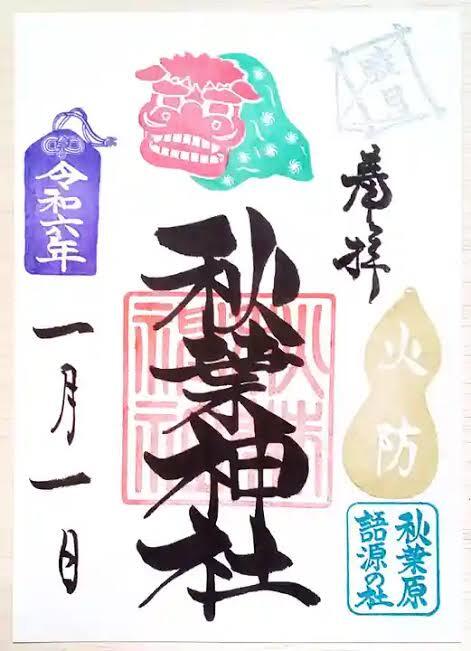 歳旦
奉拝
火防
秋葉原
語源の社
秋葉神社
令和六年
一月一日